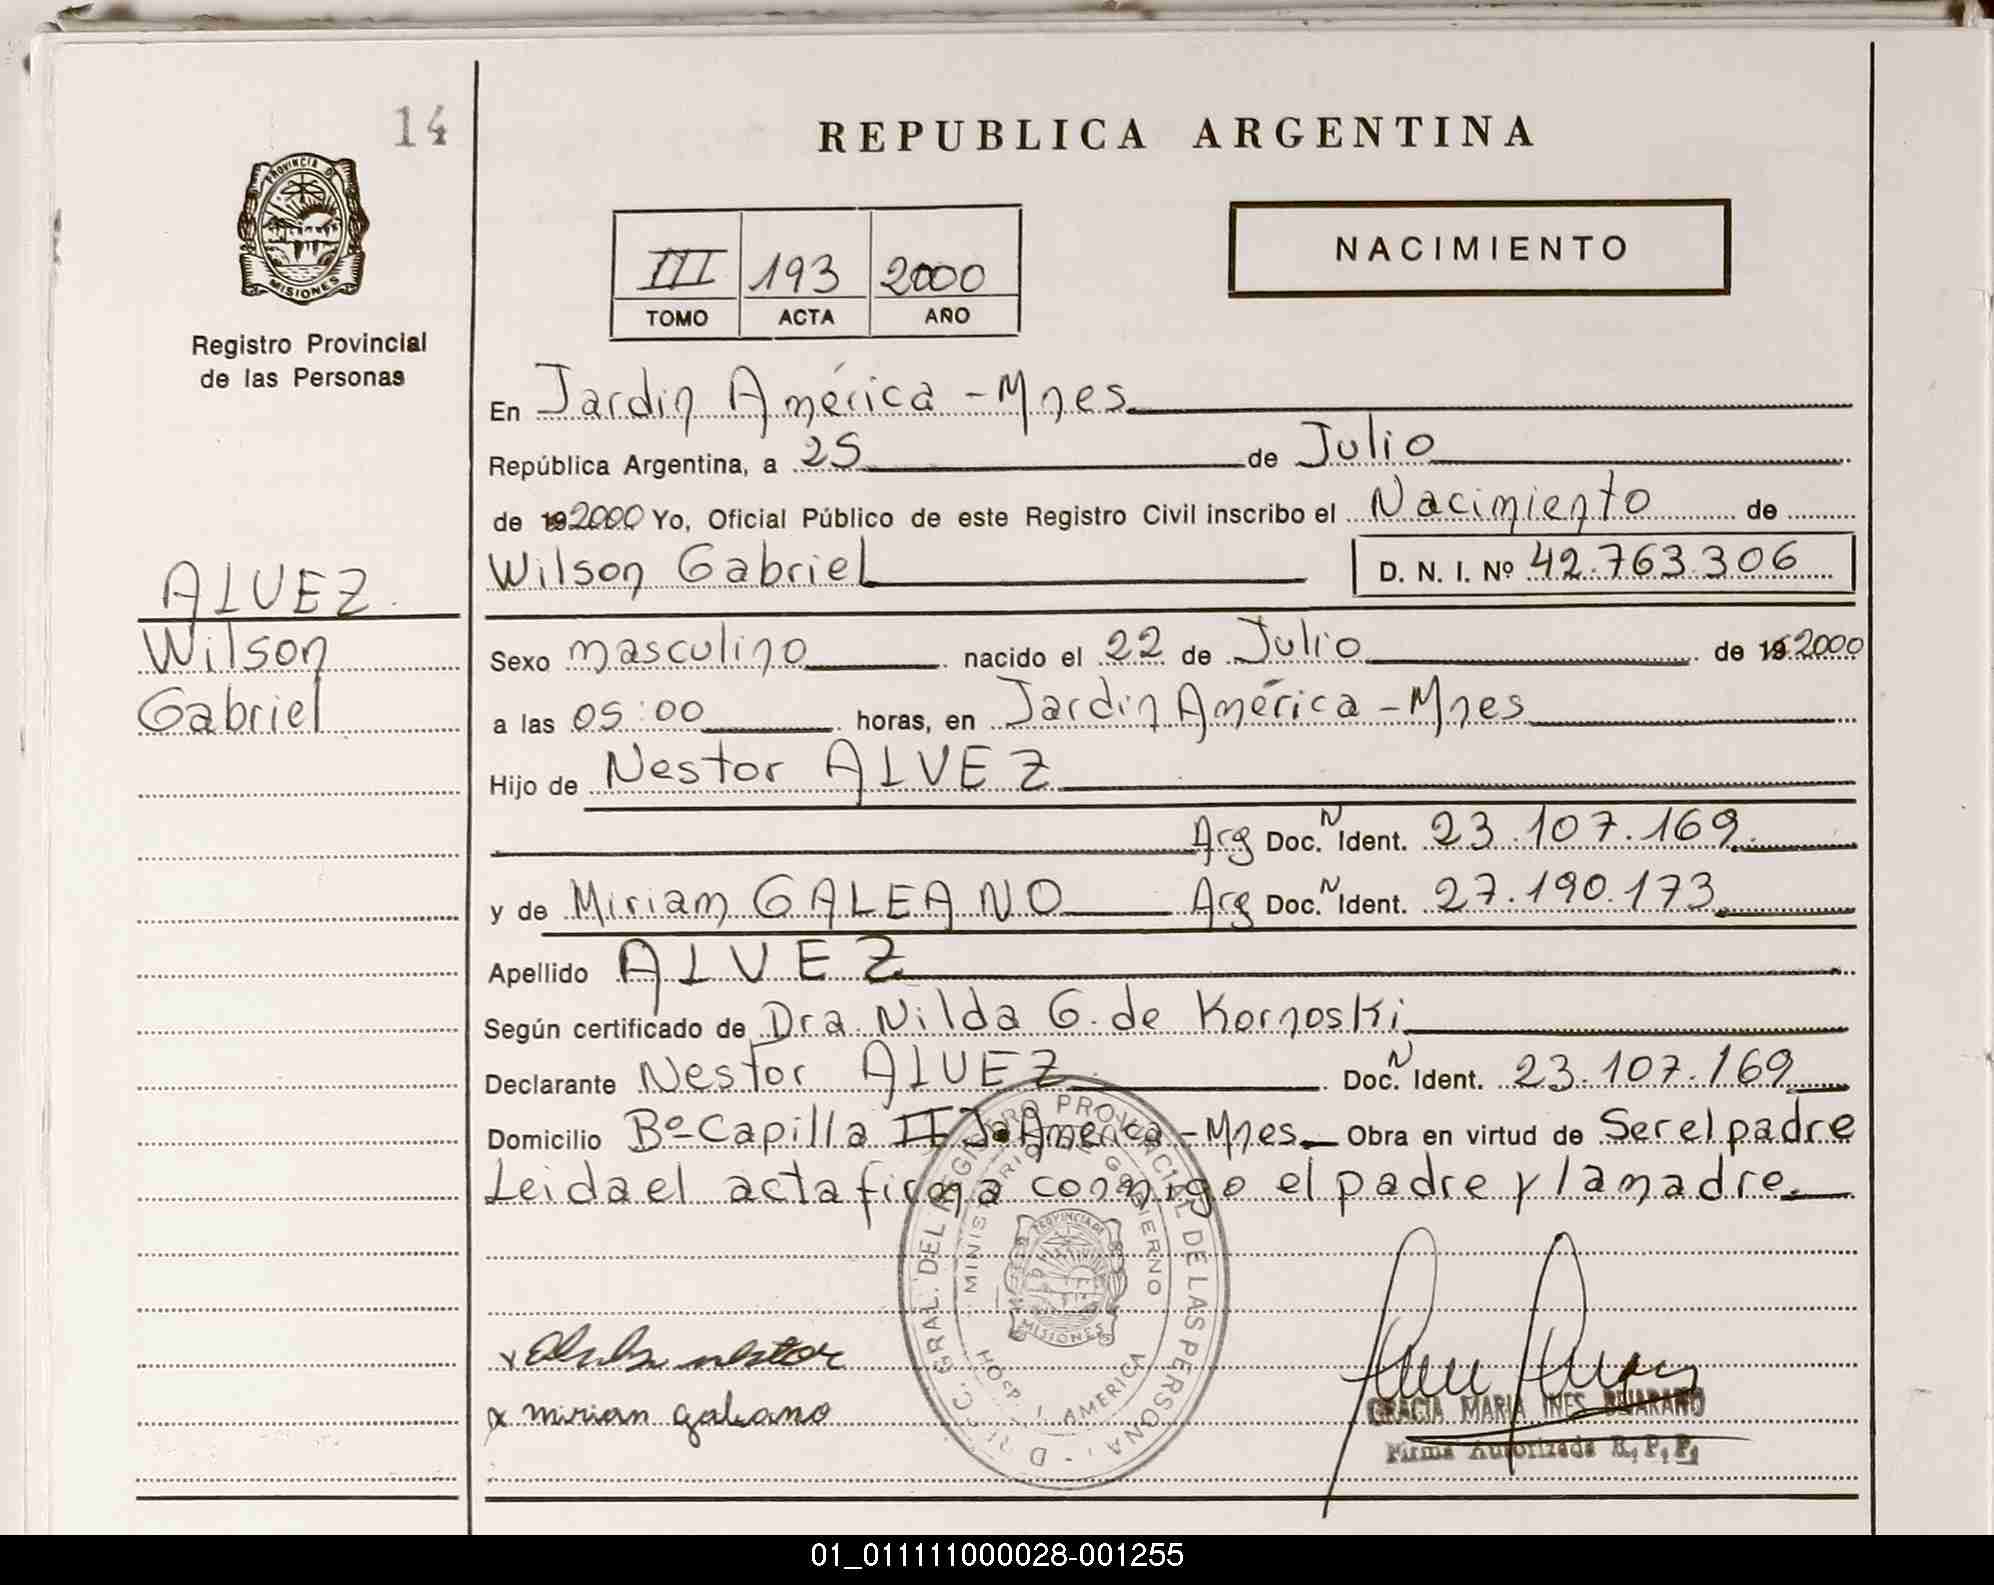 14
REPUBLICA ARGENTINA
PROVINCIA DE
MISIONES
Registro Provincial
de las Personas
III 193 2000
TOMO ACTA AÑO
NACIMIENTO
En Jardin América - Mnes
República Argentina, a 25 de Julio
de 192000 Yo, Oficial Público de este Registro Civil inscribo el Nacimiento de
Wilson Gabriel D. N. I. Nº 42.763.306
ALVEZ
Wilson
Gabriel
Sexo masculino nacido el 22 de Julio de 192000
a las 05:00 horas, en Jardin América - Mnes
Hijo de Nestor ALVEZ
Arg Doc. N Ident. 23.107.169
y de Miriam GALEANO Arg Doc. N Ident. 27.190.173
Apellido ALVEZ
Según certificado de Dra Nilda G. de Kornoski
Declarante Nestor ALVEZ Doc. N Ident. 23.107.169
Domicilio Bº Capilla II J. América - Mnes Obra en virtud de Ser el padre
Leida el acta firma conmigo el padre y la madre.
DIRECC. GRAL. DEL REGISTRO PROVINCIAL DE LAS PERSONAS
MINISTERIO DE GOBIERNO
PROVINCIA DE
MISIONES
HOSP. J. AMERICA
x nestor
x mirian galeano
GRACIA MARIA INES BEJARANO
Firma Autorizada R. P. P.
01_011111000028-001255